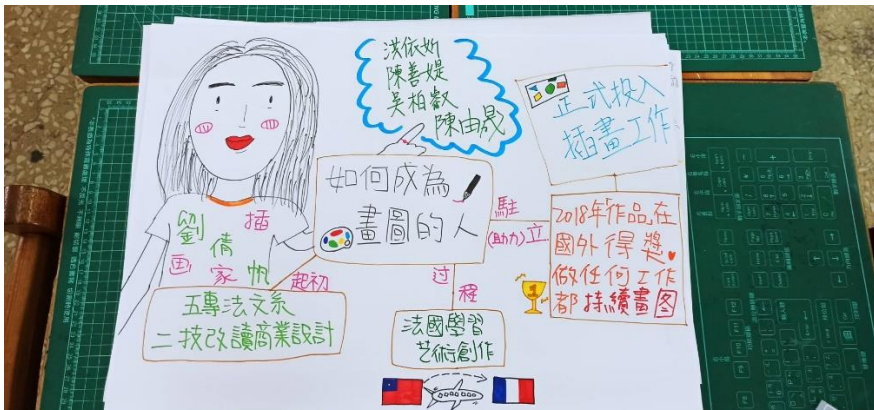 洪依妡
陳善媞
吳柏叡
陳由晟
正式投入
插畫工作
如何成為
畫圖的人
劉倩帆
插画家
起初
五專法文系
二技改讀商業設計
过程
法國學習
艺術創作
駐
(助力)立
2018年作品在
國外得獎
做任何工作
都持續畫图
1